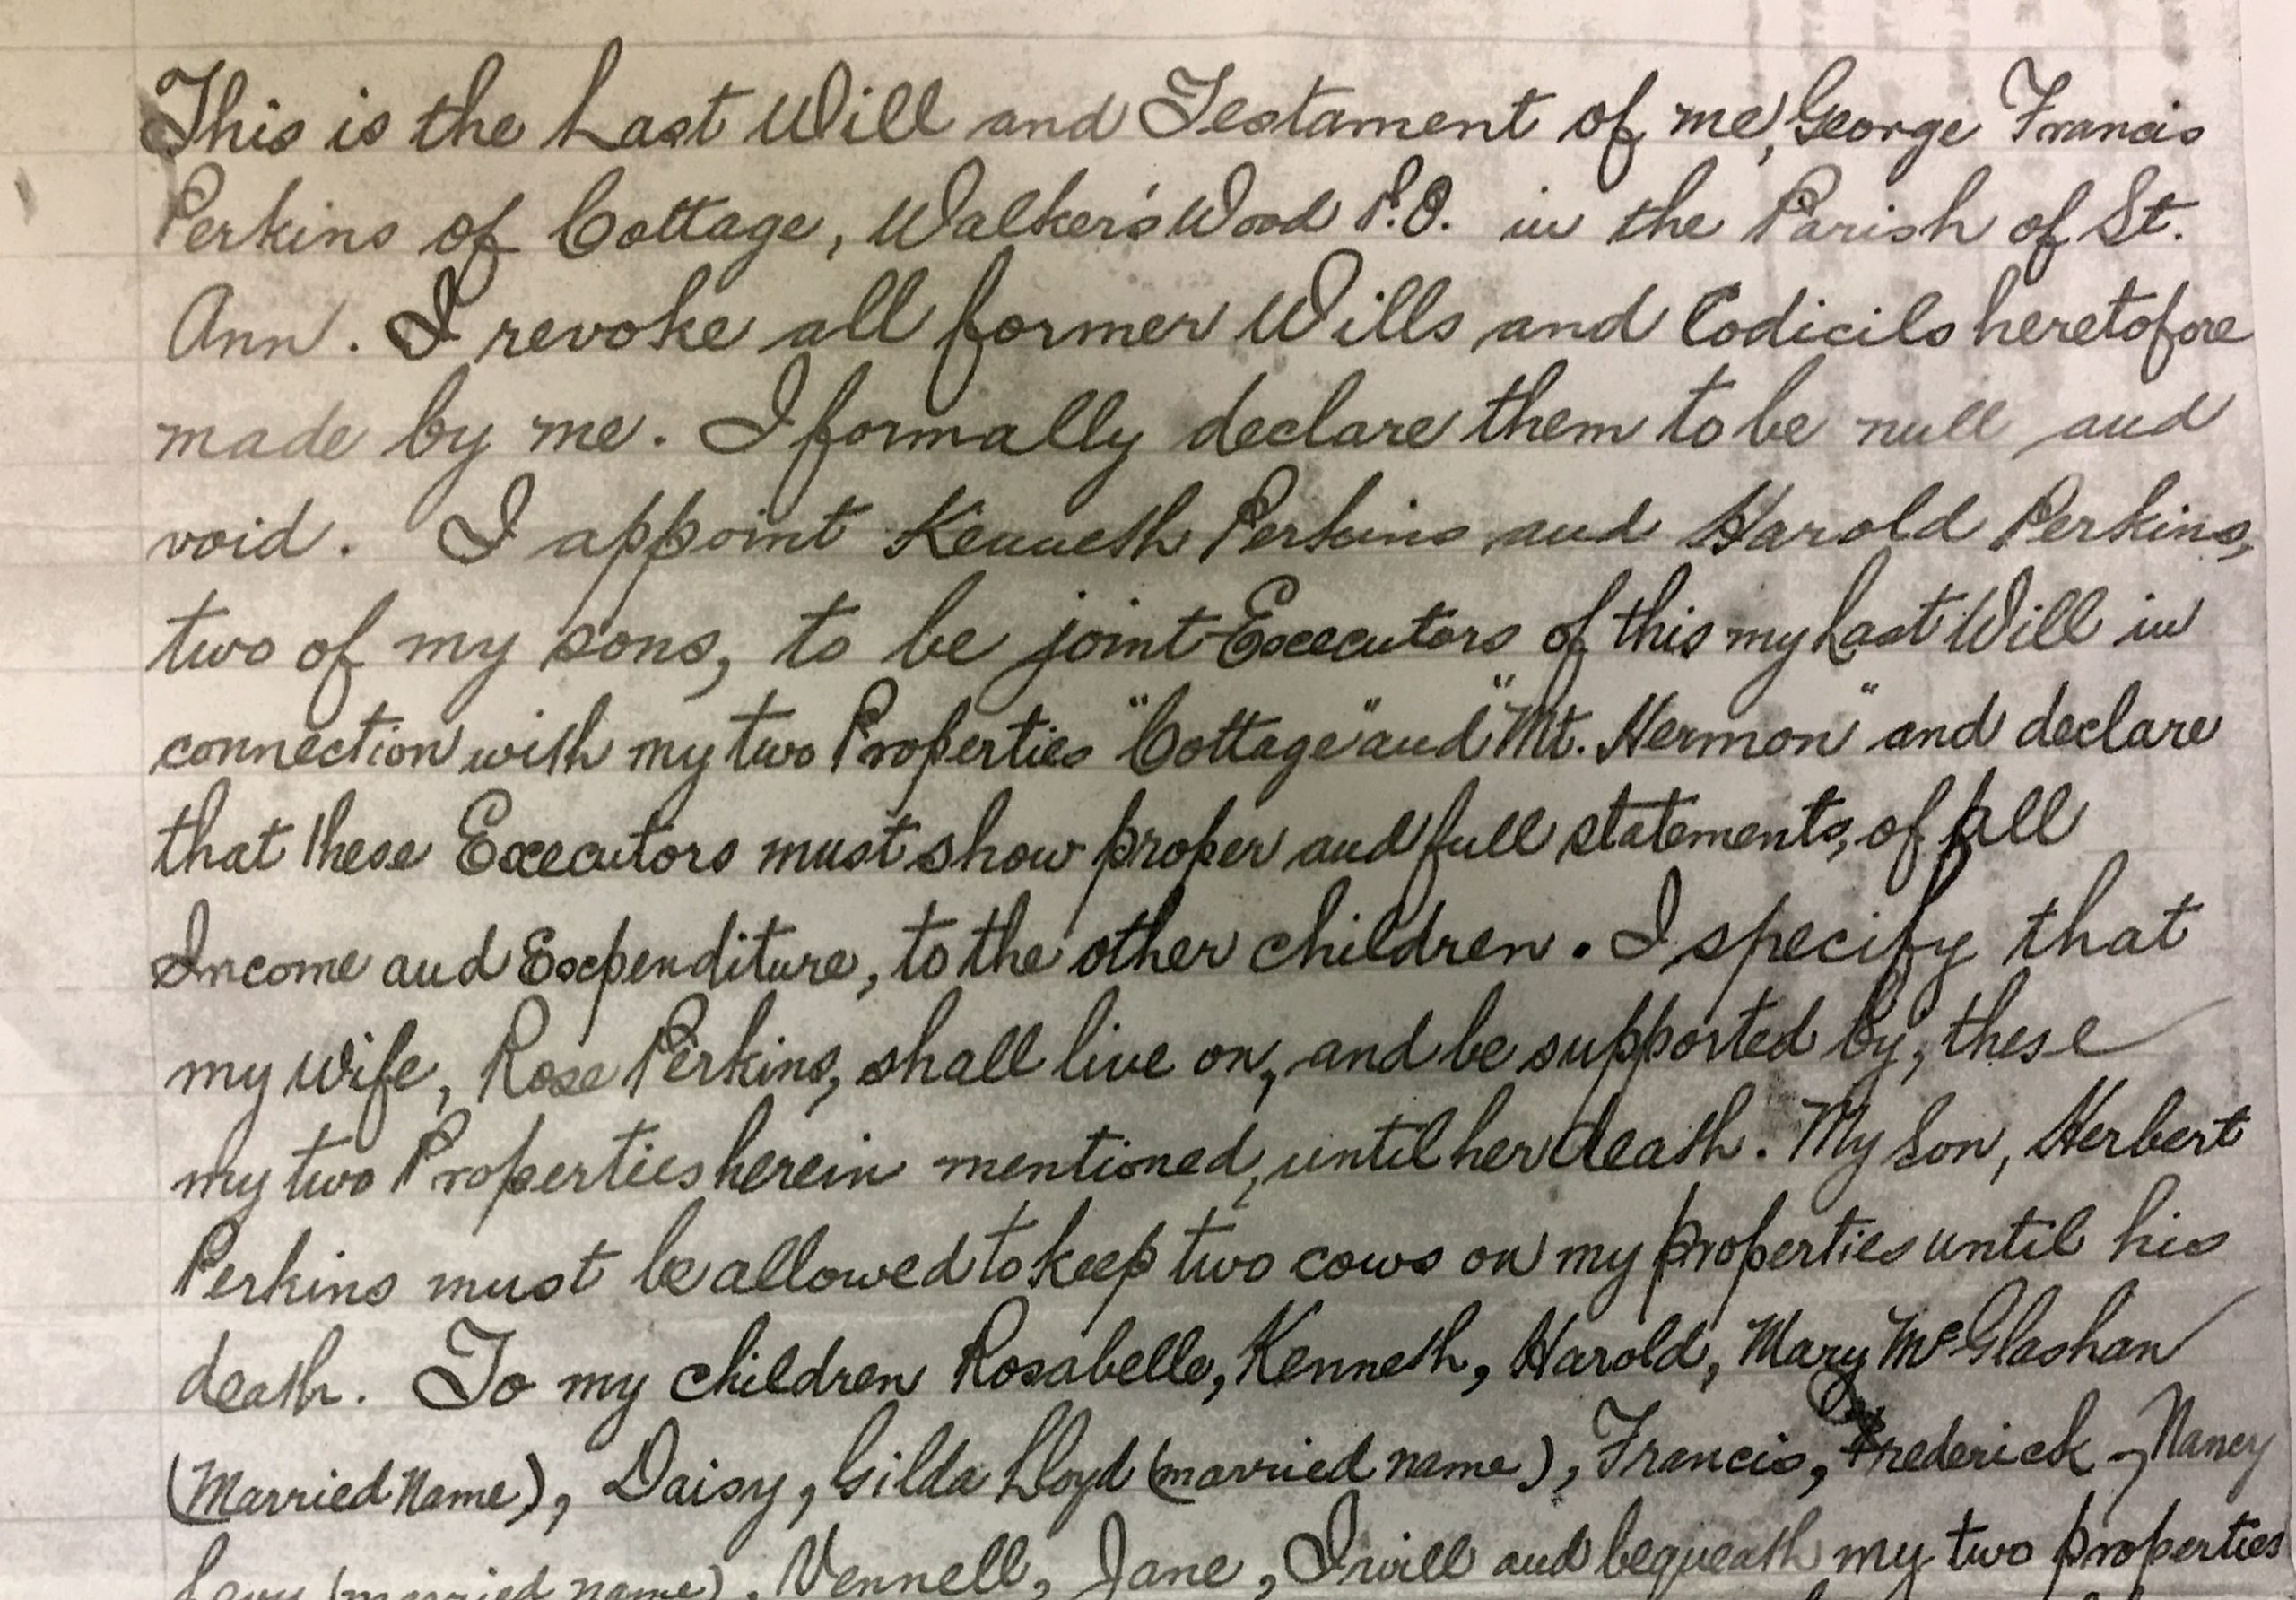 This is the Last Will and Testament of me, George Francis
Perkins of Cottage, Walker's Wood P.O. in the Parish of St.
Ann. I revoke all former Wills and Codicils heretofore
made by me. I formally declare them to be null and
void. I appoint Kenneth Perkins and Harold Perkins,
two of my sons, to be joint Executors of this my Last Will in
connection with my two Properties "Cottage" and "Mt. Hermon" and declare
that these Executors must show proper and full statements, of all
Income and Expenditure, to the other children. I specify that
my wife, Rose Perkins, shall live on, and be supported by, these
my two Properties herein mentioned, until her death. My Son, Herbert
Perkins must be allowed to keep two cows on my properties until his
death. To my children Rosabelle, Kenneth, Harold, Mary McGlashan
(Married Name), Daisy, Gilda Lloyd (married name), Francis, Frederick, Nancy
Levy (married name), Vennell, Jane, I will and bequeath my two properties